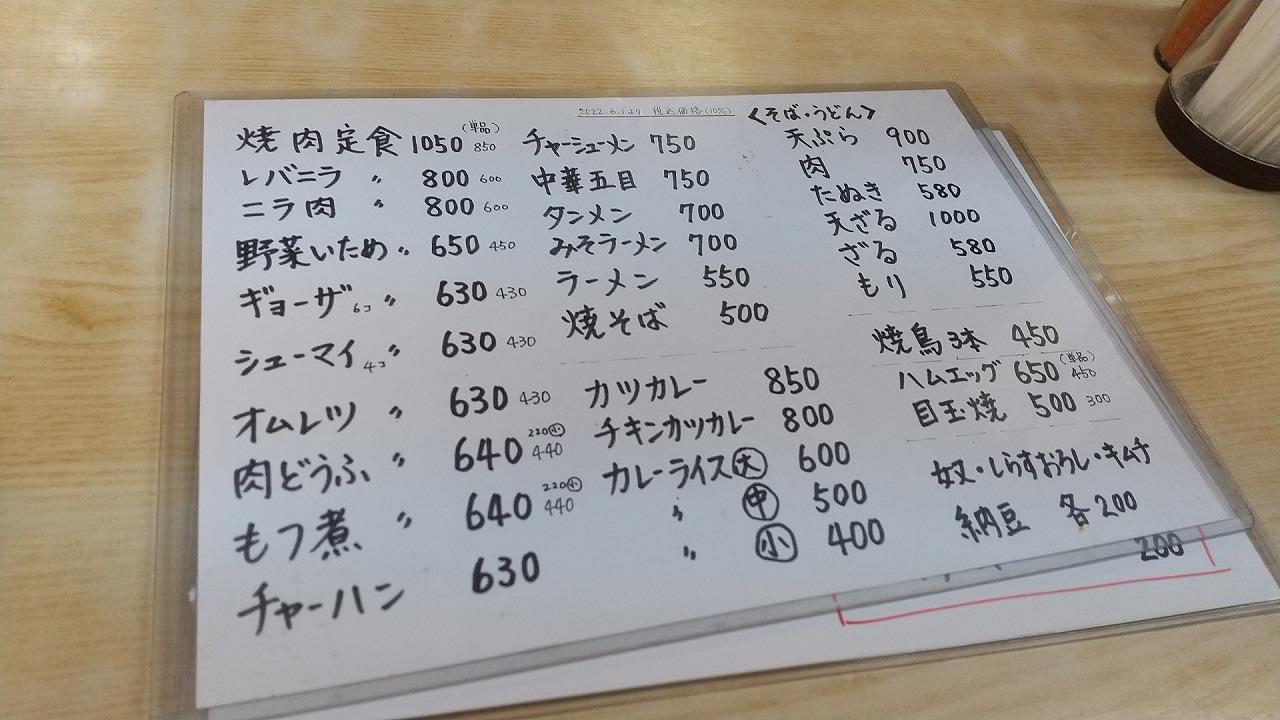 2022.6.1より 税込価格(10%)
焼肉定食 1050 (単品) 850
レバニラ 〃 800 600
ニラ肉 〃 800 600
野菜いため 〃 650 450
ギョーザ 6コ 〃 630 430
シューマイ 4コ 〃 630 430
オムレツ 〃 630 430
肉どうふ 〃 640 220小 440
もつ煮 〃 640 220小 440
チャーハン 630
チャーシューメン 750
中華五目 750
タンメン 700
みそラーメン 700
ラーメン 550
焼そば 500
カツカレー 850
チキンカツカレー 800
カレーライス大 600
〃 中 500
〃 小 400
<そば・うどん>
天ぷら 900
肉 750
たぬき 580
天ざる 1000
ざる 580
もり 550
焼鳥3本 450
ハムエッグ 650 (単品) 450
目玉焼 500 300
奴・しらすおろし・キムチ
納豆 各200
200